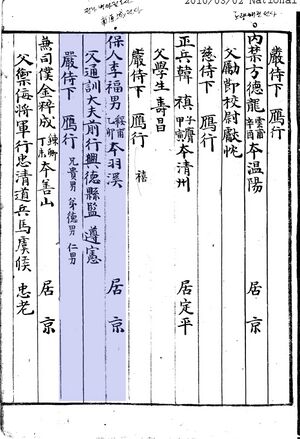 2010/03/02 National
嚴侍下 鴈行
內禁方方德龍 雲甫 辛酉 本溫陽 居京
父勵節校尉 獻忱
慈侍下 鴈行
正兵韓禛 子膺 甲寅 本淸州 居定平
父學生 壽昌
嚴侍下 鴈行 禧
保人李福男 綏甫 乙卯 本羽溪 居京
父通訓大夫前行興德縣監 遵憲
嚴侍下 鴈行 兄貴男 弟德男 仁男
兼司僕金粹成 鍊卿 丁亥 本善山 居京
父禦侮將軍行忠淸道兵馬虞候 忠老